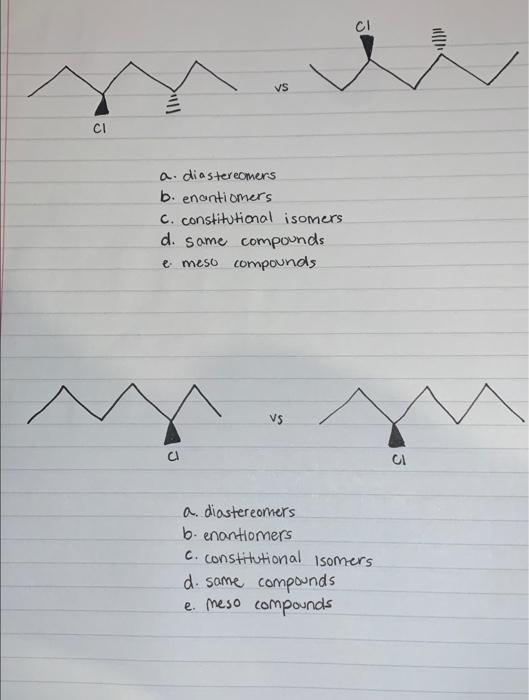 Cl
vs
Cl
a. diastereomers
b. enantiomers
c. constitutional isomers
d. same compounds
e. meso compounds
vs
Cl
Cl
a. diastereomers
b. enantiomers
c. constitutional isomers
d. same compounds
e. meso compounds